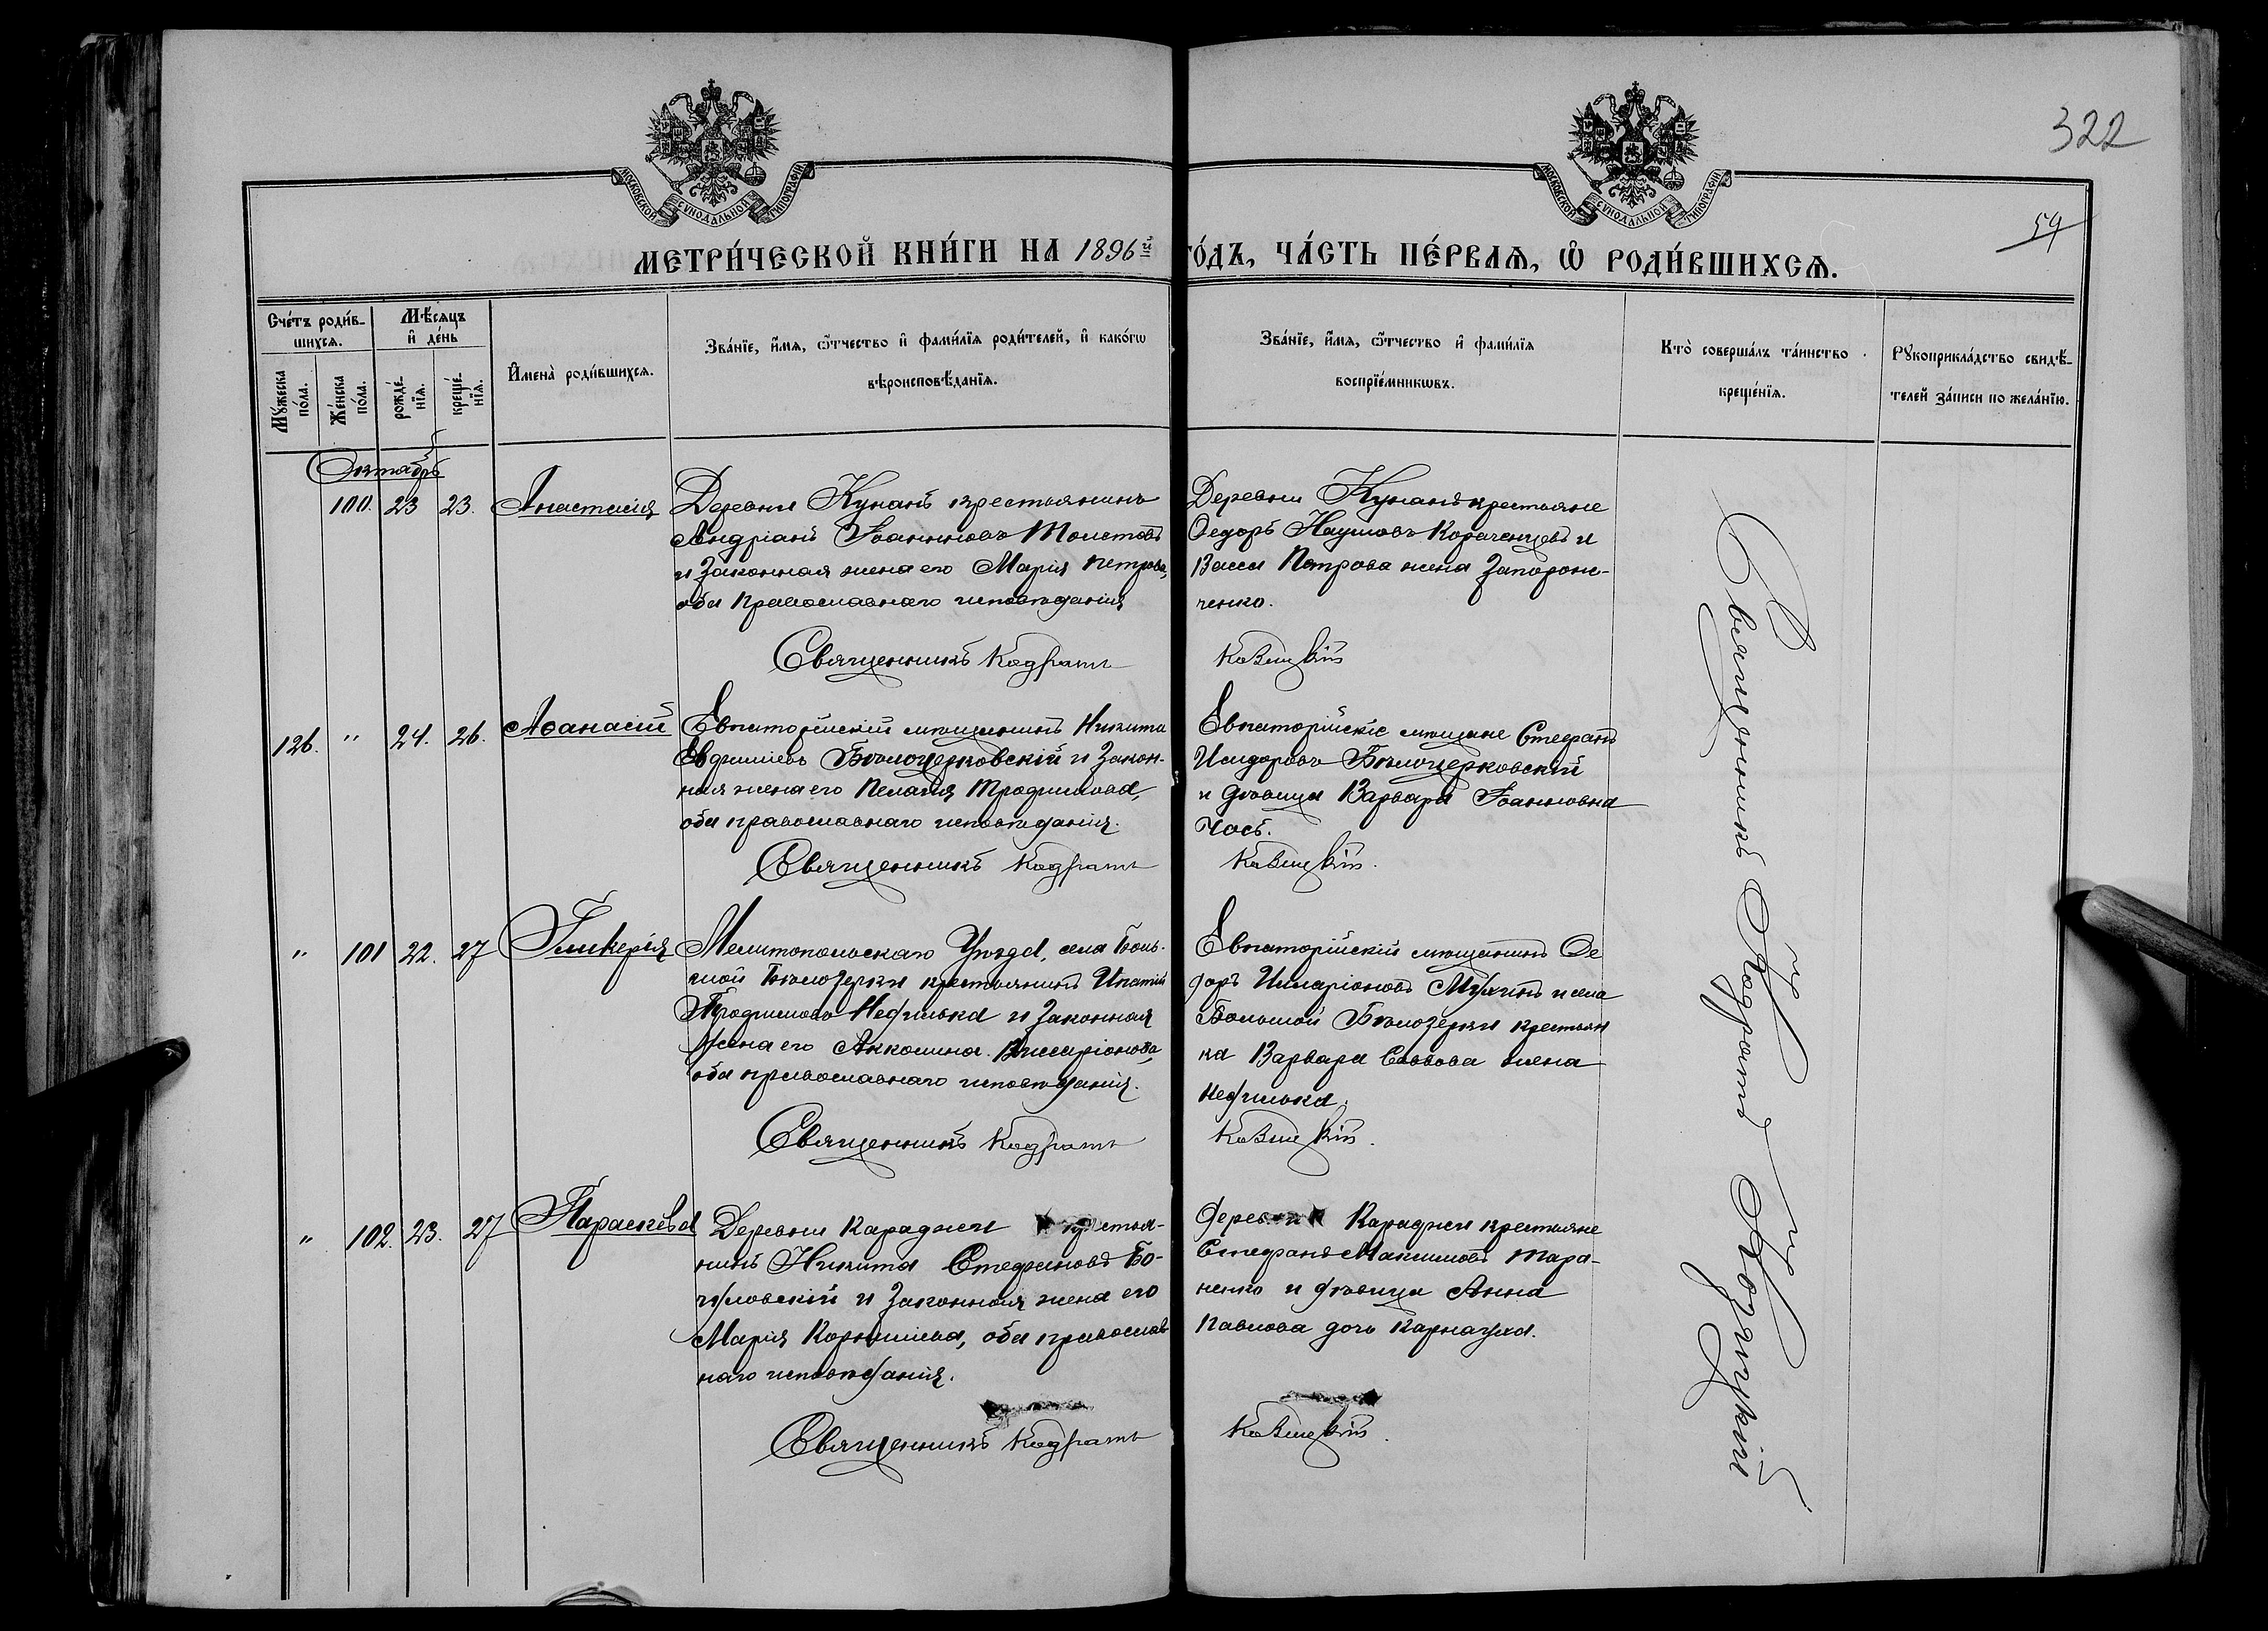 322
59
МОСКОВСКОЙ СУНОДАЛЬНОЙ ТИПОГРАФІИ
МОСКОВСКОЙ СУНОДАЛЬНОЙ ТИПОГРАФІИ
МЕТРИ́ЧЕСКОЙ КНИ́ГИ НА 1896й ГО́ДЪ, ЧА́СТЬ ПЕ́РВАѦ, Ѡ РОДИ́ВШИХСѦ.
Сче́тъ роди́в-
шихся.
Мѣ́сяцъ
и де́нь
Мꙋ́жеска по́ла.
Же́нска по́ла.
рожде́-
нїя.
креще́-
нїя.
Имена̀ роди́вшихся.
Зва́нїе, и́мя, ѻ́тчество и фами́лїя роди́телей, и како́гѡ
вѣроисповѣ́данїя.
Зва́нїе, и́мя, ѻ́тчество и фами́лїя
воспрїе́мникѡвъ.
Кто̀ соверша́лъ та́инство
креще́нїя.
Рꙋкоприкла́дство свидѣ́-
телей за́писи по жела́нїю.
Октябрь
100. 23 23. Анастасія
Деревни Кунанъ крестьянинъ
Андріанъ Іоанновъ Толстовъ
и законная жена его Марія Петрова,
оба православнаго исповѣданія
Священникъ Кодратъ Козицкій
Деревни Кунанъ крестьяне
Ѳедоръ Наумовъ Кораченцевъ и
Васса Петрова жена Запорож-
ченко.
126. " 24. 26. Аѳанасій
Евпаторійскій мѣщанинъ Никита
Евфиміевъ Бѣлоцерковскій и закон-
ная жена его Пелагія Трофимова,
оба православнаго исповѣданія.
Священникъ Кодратъ Козицкій.
Евпаторійскіе мѣщане Стефанъ
Исидоровъ Бѣлоцерковскій
и дѣвица Варвара Іоанновна
Часъ.
" 101 22. 27 Гликерія
Мелитопольскаго Уѣзда, села Боль-
шой Бѣлозерки крестьянинъ Ипатій
Трофимовъ Недилька и законная
жена его Акколина Виссаріонова,
оба православнаго исповѣданія.
Священникъ Кодратъ Козицкій.
Евпаторійскій мѣщанинъ Ѳе
доръ Иларіоновъ Мухинъ и села
Большой Бѣлозерки крестьян
ка Варвара Саввова жена
Недилька.
" 102. 23. 27 Параскева
Деревни Караджи крестья-
нинъ Никита Стефановъ Бо-
гуловскій и законная жена его
Марія Корниліева, оба православ
наго исповѣданія.
Священникъ Кодратъ Козицкій.
Деревни Караджи крестьяне
Стефанъ Максимовъ Тара-
ненко и дѣвица Анна
Павлова дочь Карнауха.
Священникъ Кодратъ Козицкій